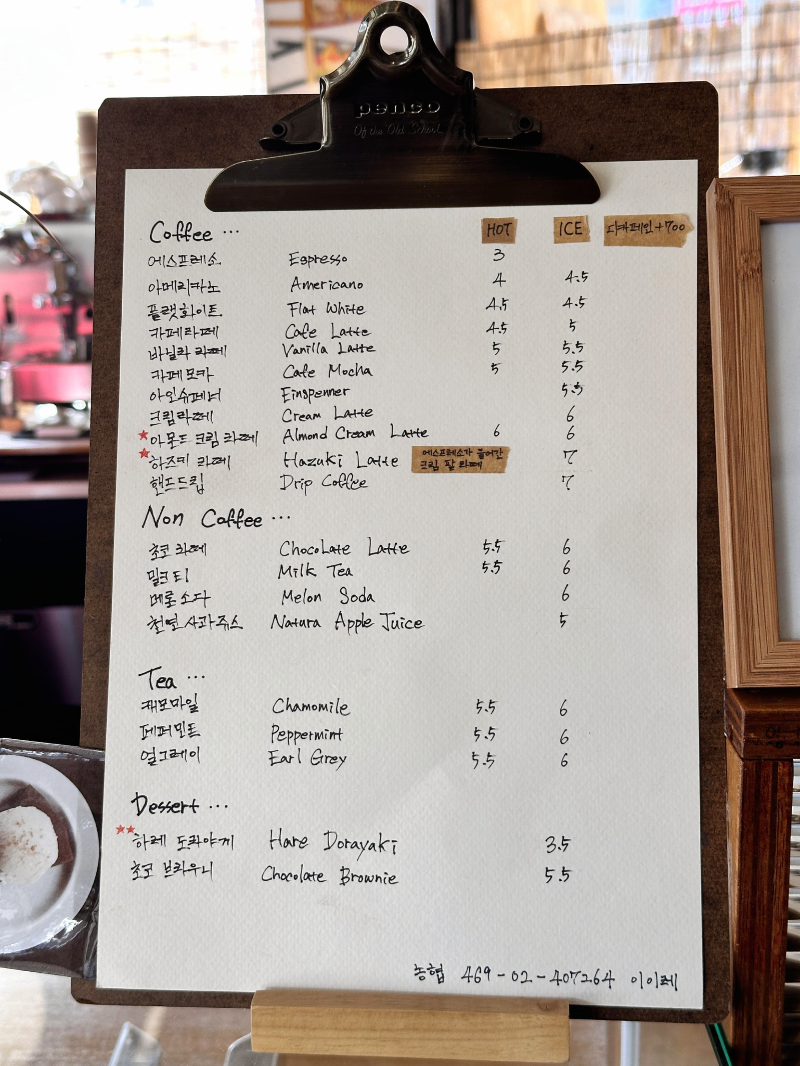 penco
Of the Old School
Coffee ... HOT ICE 디카페인 +700
에스프레소 Espresso 3
아메리카노 Americano 4 4.5
플랫화이트 Flat White 4.5 4.5
카페라떼 Cafe Latte 4.5 5
바닐라 라떼 Vanilla Latte 5 5.5
카페모카 Cafe Mocha 5 5.5
아인슈페너 Einspenner 5.5
크림라떼 Cream Latte 6
★아몬드 크림 라떼 Almond Cream Latte 6 6
★하즈키 라떼 Hazuki Latte 에스프레소가 들어간 7
크림 팥 라떼
핸드드립 Drip Coffee 7
Non Coffee ...
초코 라떼 Chocolate Latte 5.5 6
밀크티 Milk Tea 5.5 6
메론소다 Melon Soda 6
천연사과쥬스 Natura Apple Juice 5
Tea ...
캐모마일 Chamomile 5.5 6
페퍼민트 Peppermint 5.5 6
얼그레이 Earl Grey 5.5 6
Dessert ...
★★하레 도라야끼 Hare Dorayaki 3.5
초코 브라우니 Chocolate Brownie 5.5
농협 469-02-407264 이이레